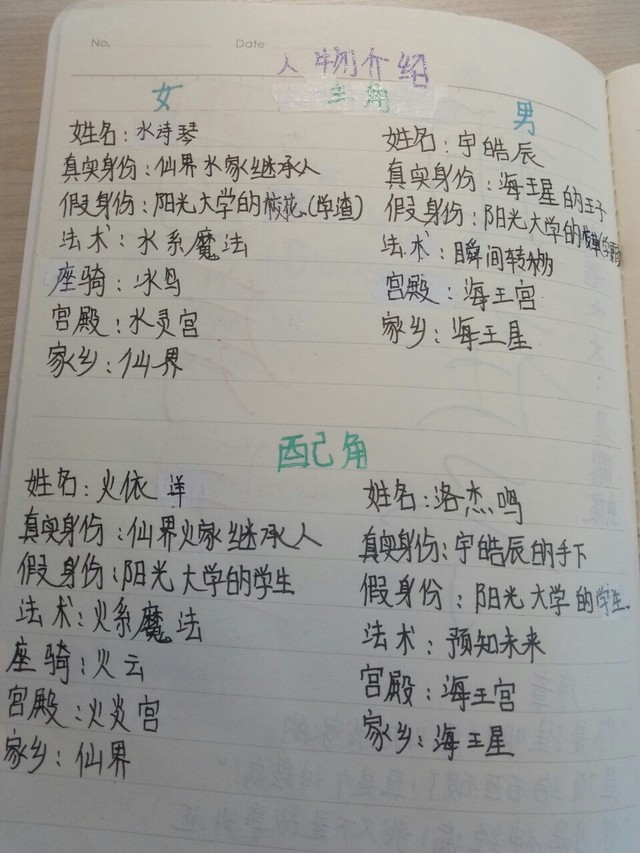 No.
Date
人物介绍
主角
女
姓名:水诗琴
真实身份:仙界水家继承人
假身份:阳光大学的校花.(学渣)
法术:水系魔法
座骑:冰鸟
宫殿:水灵宫
家乡:仙界
男
姓名:宇皓辰
真实身份:海王星的王子
假身份:阳光大学的校草(学霸)
法术:瞬间转物
宫殿:海王宫
家乡:海王星
配角
姓名:火依洋
真实身份:仙界火家继承人
假身份:阳光大学的学生
法术:火系魔法
座骑:火云
宫殿:火炎宫
家乡:仙界
姓名:洛杰鸣
真实身份:宇皓辰的手下
假身份:阳光大学的学生.
法术:预知未来
宫殿:海王宫
家乡:海王星